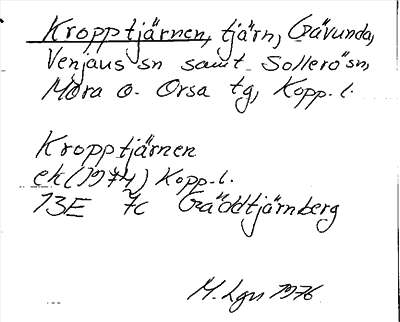 Kropptjärnen, tjärn, Gävunda,
Venjans sn samt Sollerö sn,
Mora o. Orsa tg, Kopp. l.
Kropptjärnen
ek (1974) Kopp. l.
13E 7c Gäddtjärnberg
M. Lgn 1976